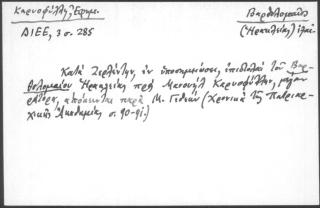 Καρυοφύλλη, Εφημ.
Βαρθολομαῖος
ΔΙΕΕ, 3 σ. 285
(Ἡρακλείας)
Κατὰ Ζερλέντην, ἐν ὑποσημειώσει, ἐπιστολαὶ τοῦ Βαρ-
θολομαίου Ἡρακλείας πρὸς Μανουὴλ Καρυοφύλλην, μέγαν
ῥήτορα, ἀπόκεινται παρὰ Μ. Γεδεών (Χρονικὰ τῆς Πατριαρ-
χικῆς Ἀκαδημίας σ. 90-91.)